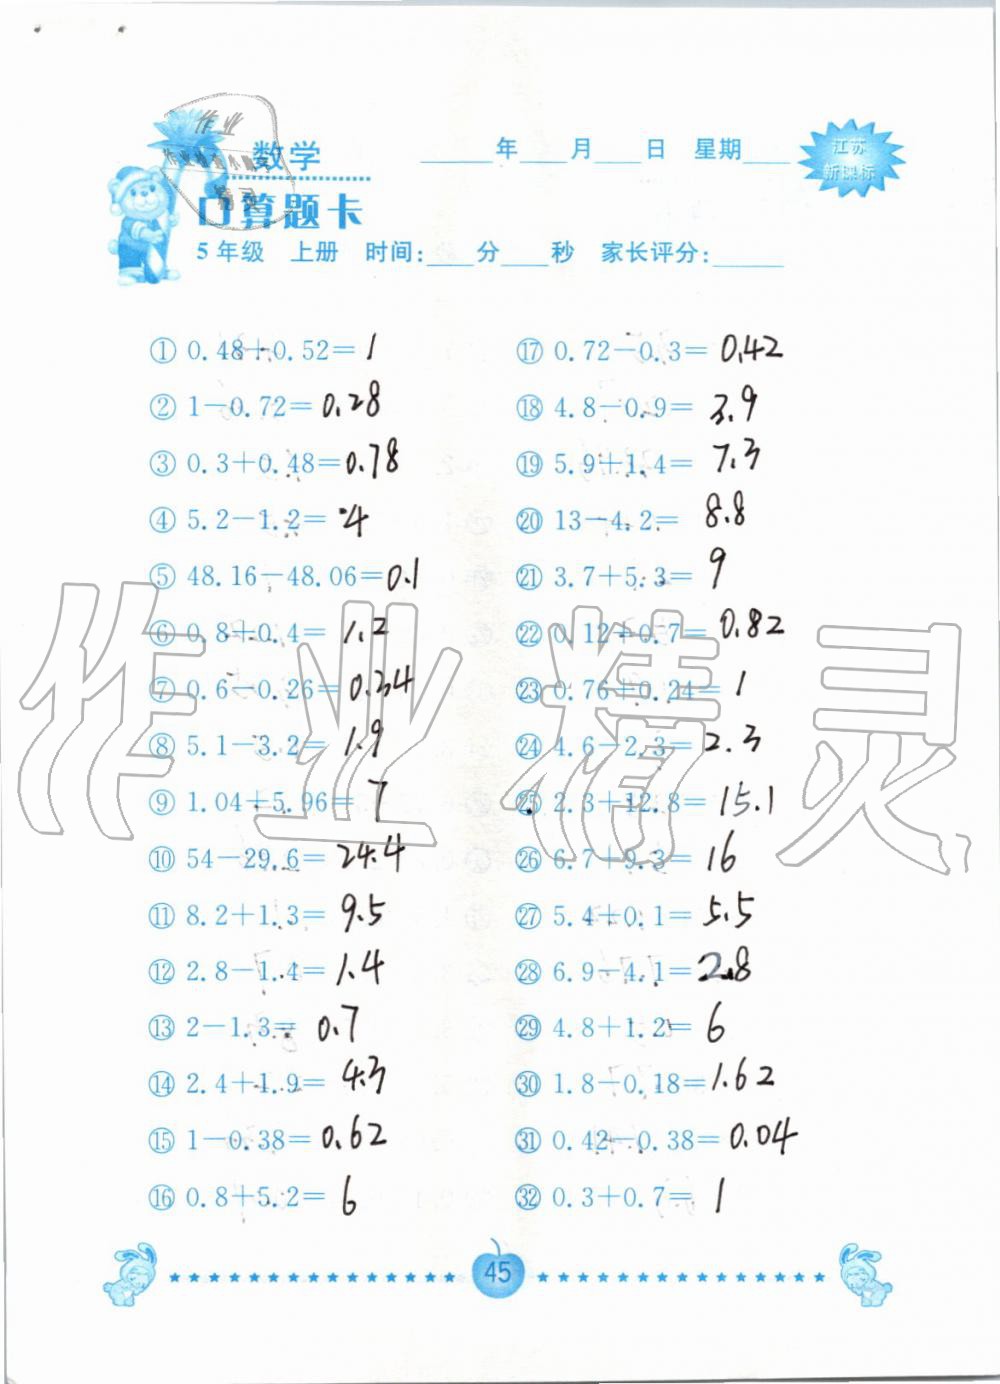 作业
作业检查小助手
精灵
数学
____年___月___日 星期___
江苏
新课标
口算题卡
5年级 上册 时间:___分___秒 家长评分:____
① 0.48+0.52=1
② 1-0.72=0.28
③ 0.3+0.48=0.78
④ 5.2-1.2=4
⑤ 48.16-48.06=0.1
⑥ 0.8+0.4=1.2
⑦ 0.6-0.26=0.34
⑧ 5.1-3.2=1.9
⑨ 1.04+5.96=7
⑩ 54-29.6=24.4
⑪ 8.2+1.3=9.5
⑫ 2.8-1.4=1.4
⑬ 2-1.3=0.7
⑭ 2.4+1.9=4.3
⑮ 1-0.38=0.62
⑯ 0.8+5.2=6
⑰ 0.72-0.3=0.42
⑱ 4.8-0.9=3.9
⑲ 5.9+1.4=7.3
⑳ 13-4.2=8.8
㉑ 3.7+5.3=9
㉒ 0.12+0.7=0.82
㉓ 0.76+0.24=1
㉔ 4.6-2.3=2.3
㉕ 2.3+12.8=15.1
㉖ 6.7+9.3=16
㉗ 5.4+0.1=5.5
㉘ 6.9-4.1=2.8
㉙ 4.8+1.2=6
㉚ 1.8-0.18=1.62
㉛ 0.42-0.38=0.04
㉜ 0.3+0.7=1
作业精灵
45